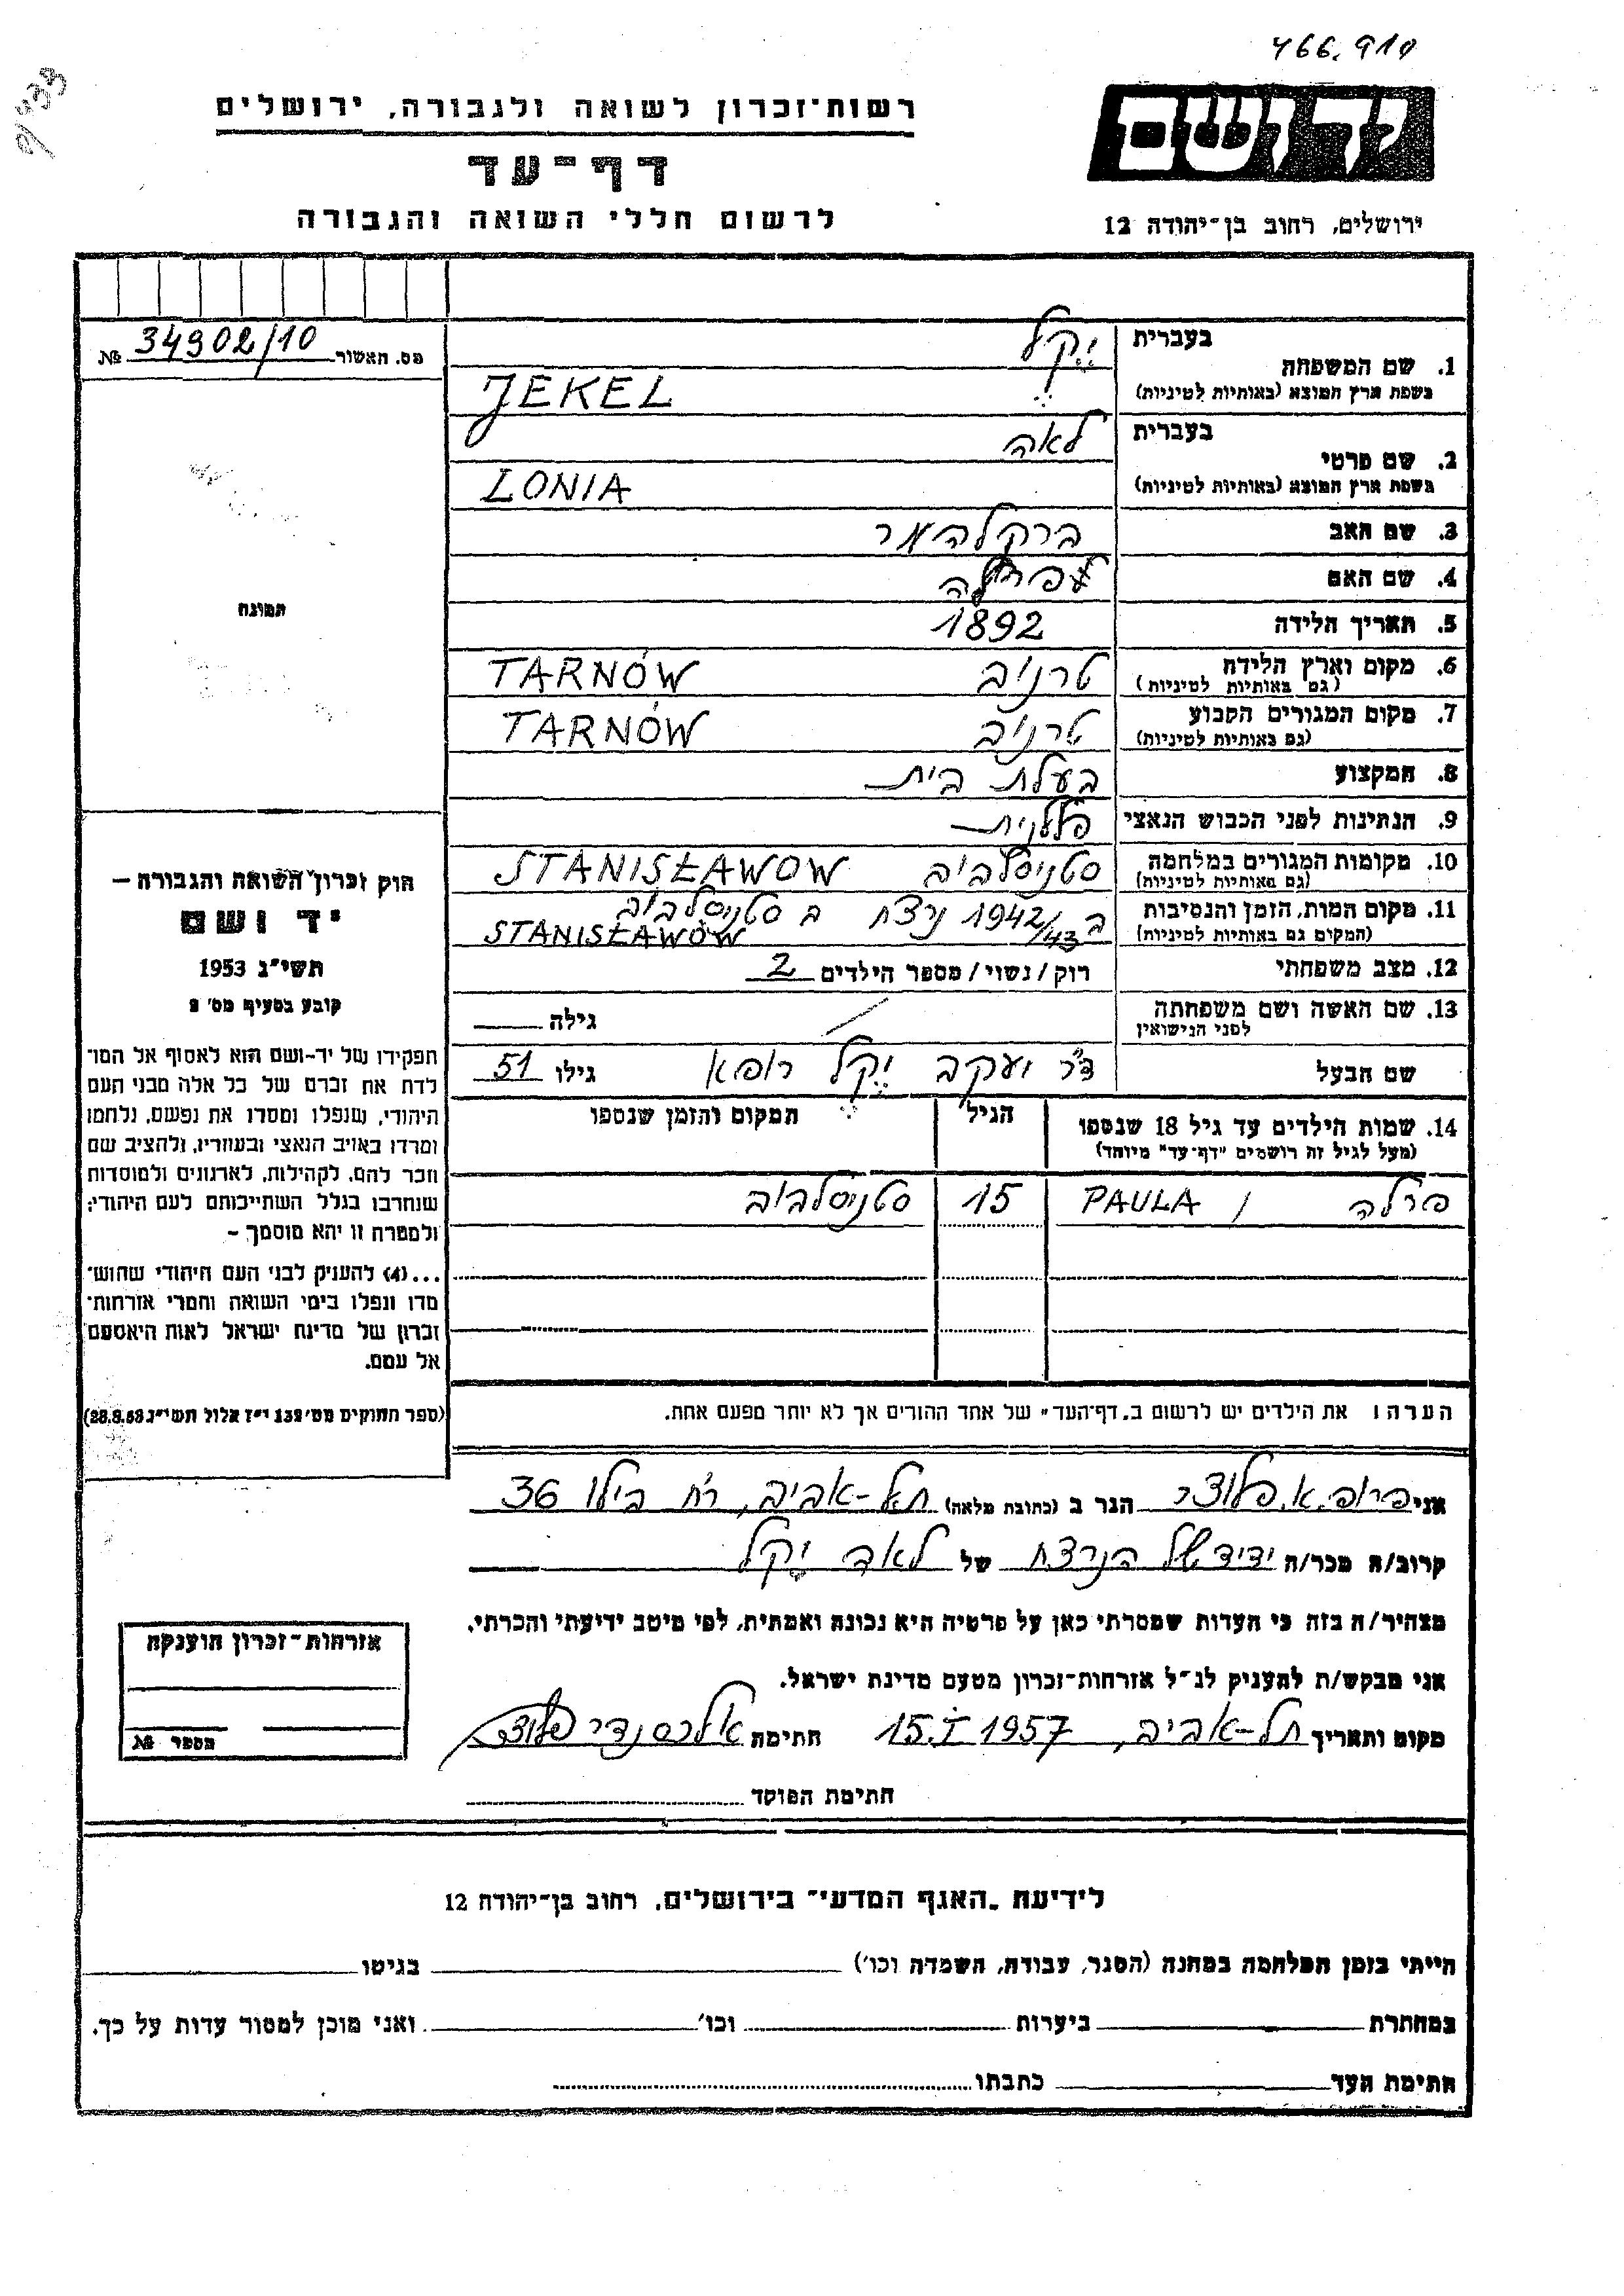 466.910
רשות־זכרון לשואה ולגבורה, ירושלים
דף־עד
לרשום חללי השואה והגבורה
ידושם
ירושלים, רחוב בן־יהודה 12
מס. האשור 34902/10 №
תמונה
1. שם המשפחה בעברית יקל
בשפת ארץ המוצא (באותיות לטיניות) JEKEL
2. שם פרטי בעברית לאה
בשפת ארץ המוצא (באותיות לטיניות) LONIA
3. שם האב
4. שם האם
5. תאריך הלידה 1892
6. מקום וארץ הלידה (גם באותיות לטיניות) טרנוב TARNÓW
7. מקום המגורים הקבוע (גם באותיות לטיניות) טרנוב TARNÓW
8. המקצוע בעלת בית
9. הנתינות לפני הכבוש הנאצי פולנית
10. מקומות המגורים במלחמה (גם באותיות לטיניות) סטניסלבוב STANISŁAWOW
11. מקום המות, הזמן והנסיבות (המקום גם באותיות לטיניות) ב 1942/43 נרצח ב סטניסלבוב STANISŁAWÓW
12. מצב משפחתי רוק/נשוי/מספר הילדים 2
13. שם האשה ושם משפחתה לפני הנישואין גילה
שם הבעל ד"ר יעקב יקל רופא גילו 51
14. שמות הילדים עד גיל 18 שנספו הגיל המקום והזמן שנספו
(מעל לגיל זה רושמים "דף־עד" מיוחד)
פרלה / PAULA 15 סטניסלבוב
הערה: את הילדים יש לרשום ב„דף־העד" של אחד ההורים אך לא יותר מפעם אחת.
חוק זכרון השואה והגבורה —
יד ושם
תשי"ג 1953
קובע בסעיף מס' 2
תפקידו של יד־ושם הוא לאסוף אל המו־
לדת את זכרם של כל אלה מבני העם
היהודי, שנפלו ומסרו את נפשם, נלחמו
ומרדו באויב הנאצי ובעוזריו, ולהציב שם
וזכר להם, לקהילות, לארגונים ולמוסדות
שנחרבו בגלל השתייכותם לעם היהודי;
ולמטרה זו יהא מוסמך —
...(4) להעניק לבני העם היהודי שהוש־
מדו ונפלו בימי השואה והמרי אזרחות־
זכרון של מדינת ישראל לאות היאספם
אל עמם.
(ספר החוקים מס' 132 י"ז אלול תשי"ג 28.8.53)
אני פרופ. א. פלוצר הגר ב (כתובת מלאה) תל-אביב, רח בילו 36
קרוב/ה מכר/ה ידיד של הנרצח של לאה יקל
מצהיר/ה בזה כי העדות שמסרתי כאן על פרטיה היא נכונה ואמתית, לפי מיטב ידיעתי והכרתי.
אני מבקש/ת להעניק לנ"ל אזרחות־זכרון מטעם מדינת ישראל.
מקום ותאריך תל-אביב, 15.I 1957 חתימה אלכסנדר פלוצר
חתימת הפוקד
אזרחות־זכרון הוענקה
מספר №
לידיעת „האגף המדעי" בירושלים, רחוב בן־יהודה 12
הייתי בזמן המלחמה במחנה (הסגר, עבודה, השמדה וכו') בגיטו
במחתרת ביערות וכו' ואני מוכן למסור עדות על כך.
חתימת העד כתבתו